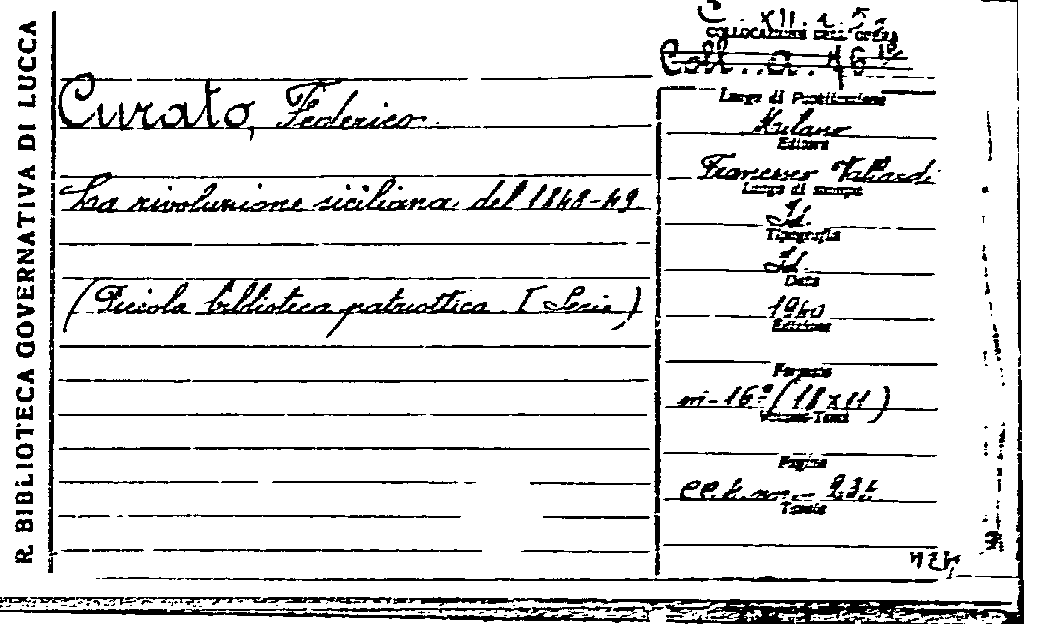 R. BIBLIOTECA GOVERNATIVA DI LUCCA
C. XII. a. 5
COLLOCAZIONE DELL'OPERA
Coll. a. 46
Curato, Federico
La rivoluzione siciliana del 1848-49
(Piccola biblioteca patriottica. I Serie)
Luogo di Pubblicazione
Milano
Editore
Francesco Vallardi
Luogo di stampa
Id.
Tipografia
Id.
Data
1940
Edizione
Formato
in-16° (18x11)
Volume-Tomi
Pagine
Tavole